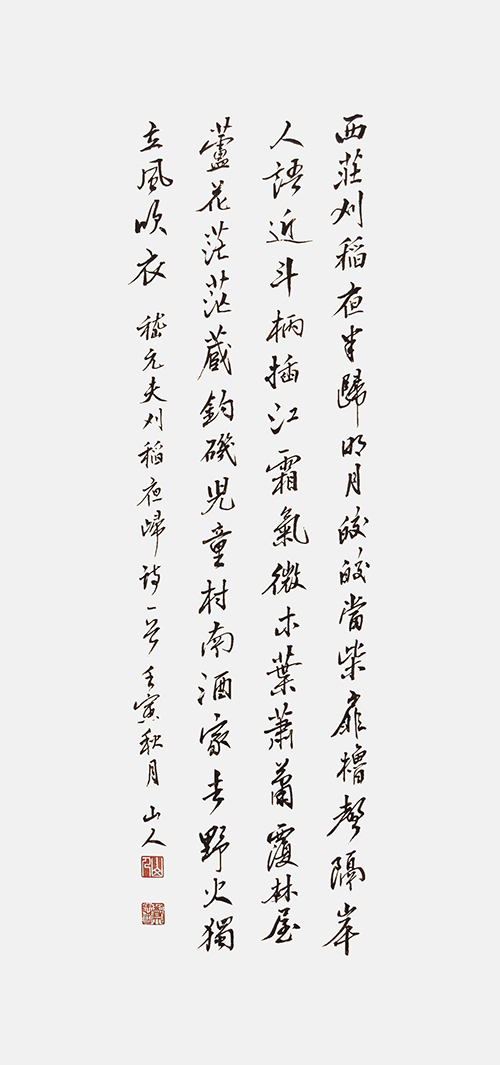 西莊刈稻夜半歸明月皎皎當柴扉櫓聲隔岸
人語近斗柄插江霜氣微木葉蕭蕭覆林屋
蘆花茫茫蔵釣磯兒童村南酒家去野火獨
立風吹衣
嵇元夫刈稻夜歸詩一首壬寅秋月山人